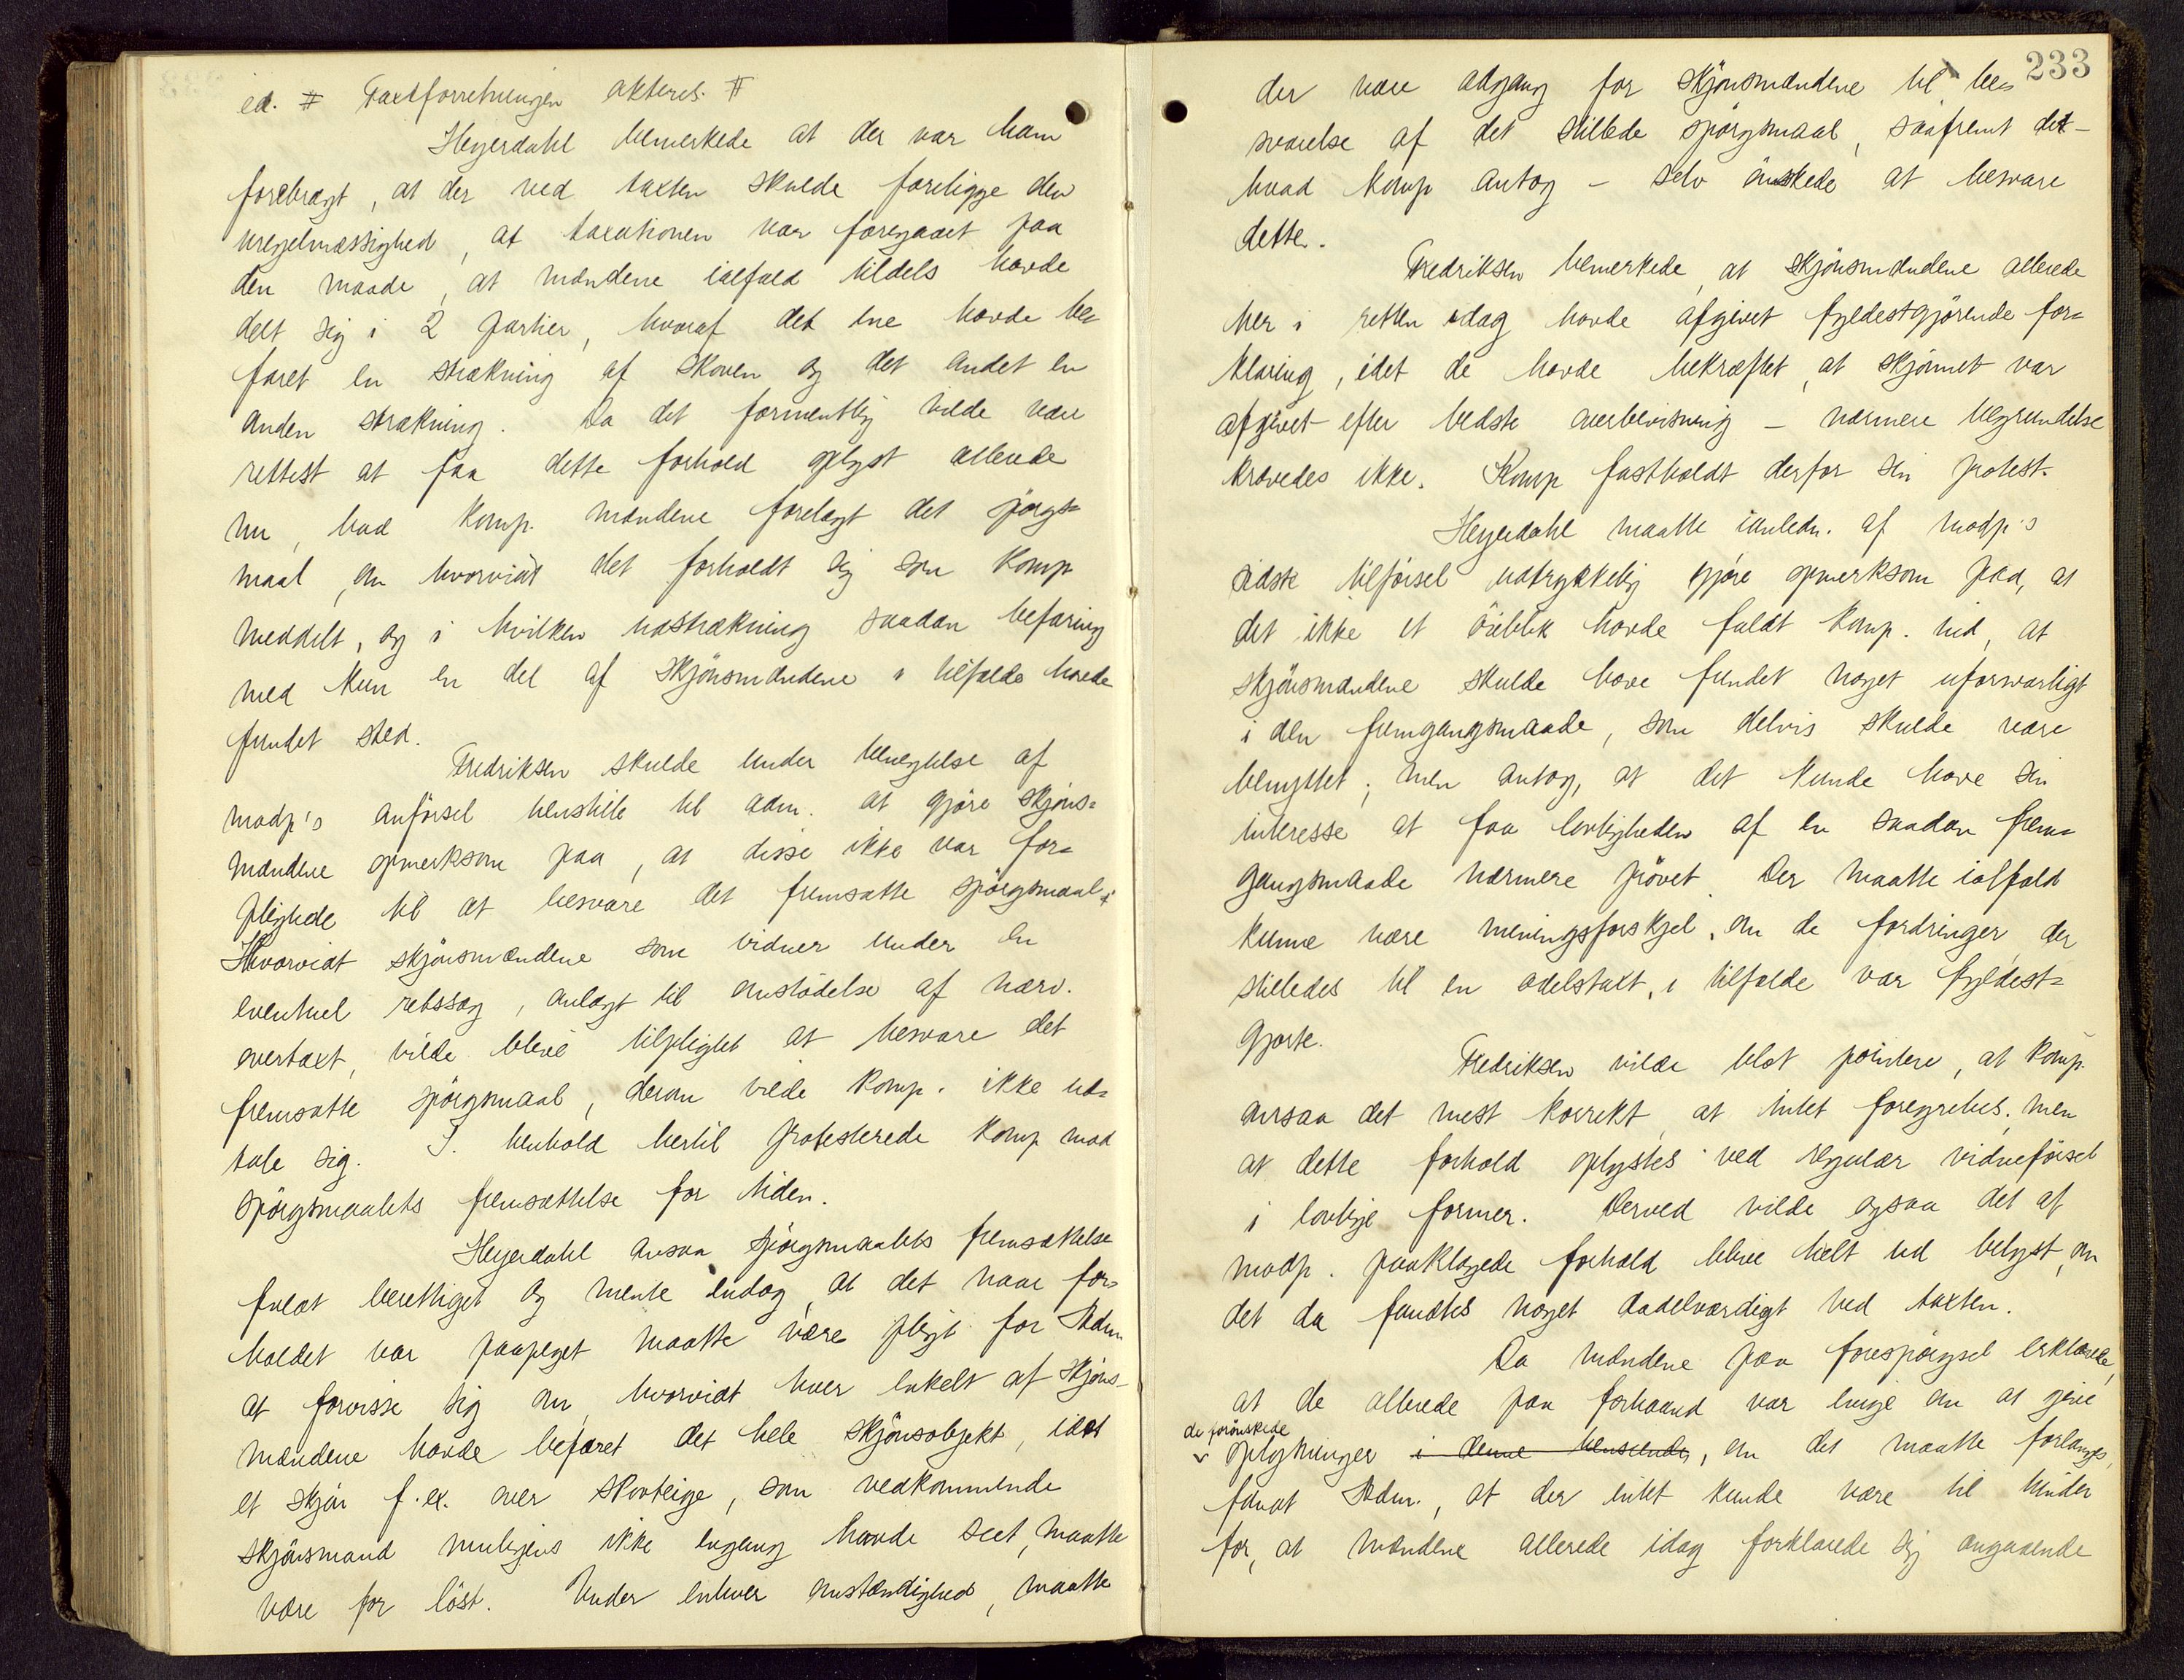 ed. # Taxtforretningen akteres. #
Heyerdahl bemerkede at der var ham
forebragt, at der ved taxten skulde foreligge den
uregelmæssighed, at taxationen var foregaaet paa
den maade, at mændene ialfald tildels havde
delt sig i 2 partier, hvoraf det ene havde be=
faret en strækning af skoven og det andet en
anden strækning. Da det formentlig vilde være
rettest at faa dette forhold oplyst allerede
nu, bad komp. mændene forelagt det spörgs=
maal, om hvorvidt det forholdt sig som komp
meddelt, og i hvilken udstrækning saadan befaring
med kun en del af skjönsmændene i tilfælde havde
fundet sted.
Fredriksen skulde under benegtelse af
modp's anförsel henstille til adm. at gjöre skjöns=
mændene opmerksom paa, at disse ikke var for=
pligtede til at besvare det fremsatte spörgsmaal.
Hvorvidt skjönsmændene som vidner under en
eventuel retssag, anlagt til omstödelse af nærv.
overtaxt, vilde blive tilpligtet at besvare det
fremsatte spörgsmaal, derom vilde komp. ikke ud=
tale sig. I henhold hertil protesterede komp mod
spörgsmaalets fremsættelse for tiden.
Heyerdahl ansaa spörgsmaalets fremsættelse
fuldt berettiget og mente endog, at det naar for=
holdet var paapeget maatte være pligt for Adm
at forvisse sig om, hvorvidt hver enkelt af skjöns-
mændene havde befaret det hele skjönsobjekt, idet
et skjön f. ex. over skovteige, som vedkommende
skjönsmand muligens ikke engang havde seet, maatte
være for löst. Under enhver omstændighed, maatte
233
der være adgang for skjönsmændene til be=
svarelse af det stillede spörgsmaal, saafremt de -
hvad komp antog - selv önskede at besvare
dette.
Fredriksen bemerkede, at skjönsmændene allerede
her i retten idag havde afgivet fyldestgjörende for=
klaring, idet de havde bekræftet, at skjönnet var
afgivet efter bedste overbevisning - nærmere begrundelse
krævedes ikke. Komp fastholdt derfor sin protest.
Heyerdahl maatte ianledn. af modp's
sidste tilförsel udtrykkelig gjöre opmerksom paa, at
det ikke et öieblik havde faldt komp. ind, at
skjönsmændene skulde have fundet noget uforsvarligt
i den fremgangsmaade, som delvis skulde være
benyttet; men antog, at det kunde have sin
interesse at faa lovligheden af en saadan frem=
gangsmaade nærmere prövet. Der maatte ialfald
kunne være meningsforskjel, om de fordringer, der
stilledes til en odelstaxt, i tilfælde var fyldest=
gjorte.
Fredriksen vilde blot pointere, at komp.
ansaa det mest korrekt, at intet foregrebes, men
at dette forhold oplystes ved regulær vidneförsel
i lovlige former. Derved vilde ogsaa det af
modp. paaklagede forhold blive helt ud belyst, om
det da fandtes noget dadelværdigt ved taxten.
Da mændene paa forespörgsel erklærede,
at de allerede paa forhaand var enige om at give
de forönskede
v oplysninger i denne henseende, om det maatte forlanges,
fandt Adm., at der intet kunde være til hinder
for, at mændene allerede idag forklarede sig angaaende